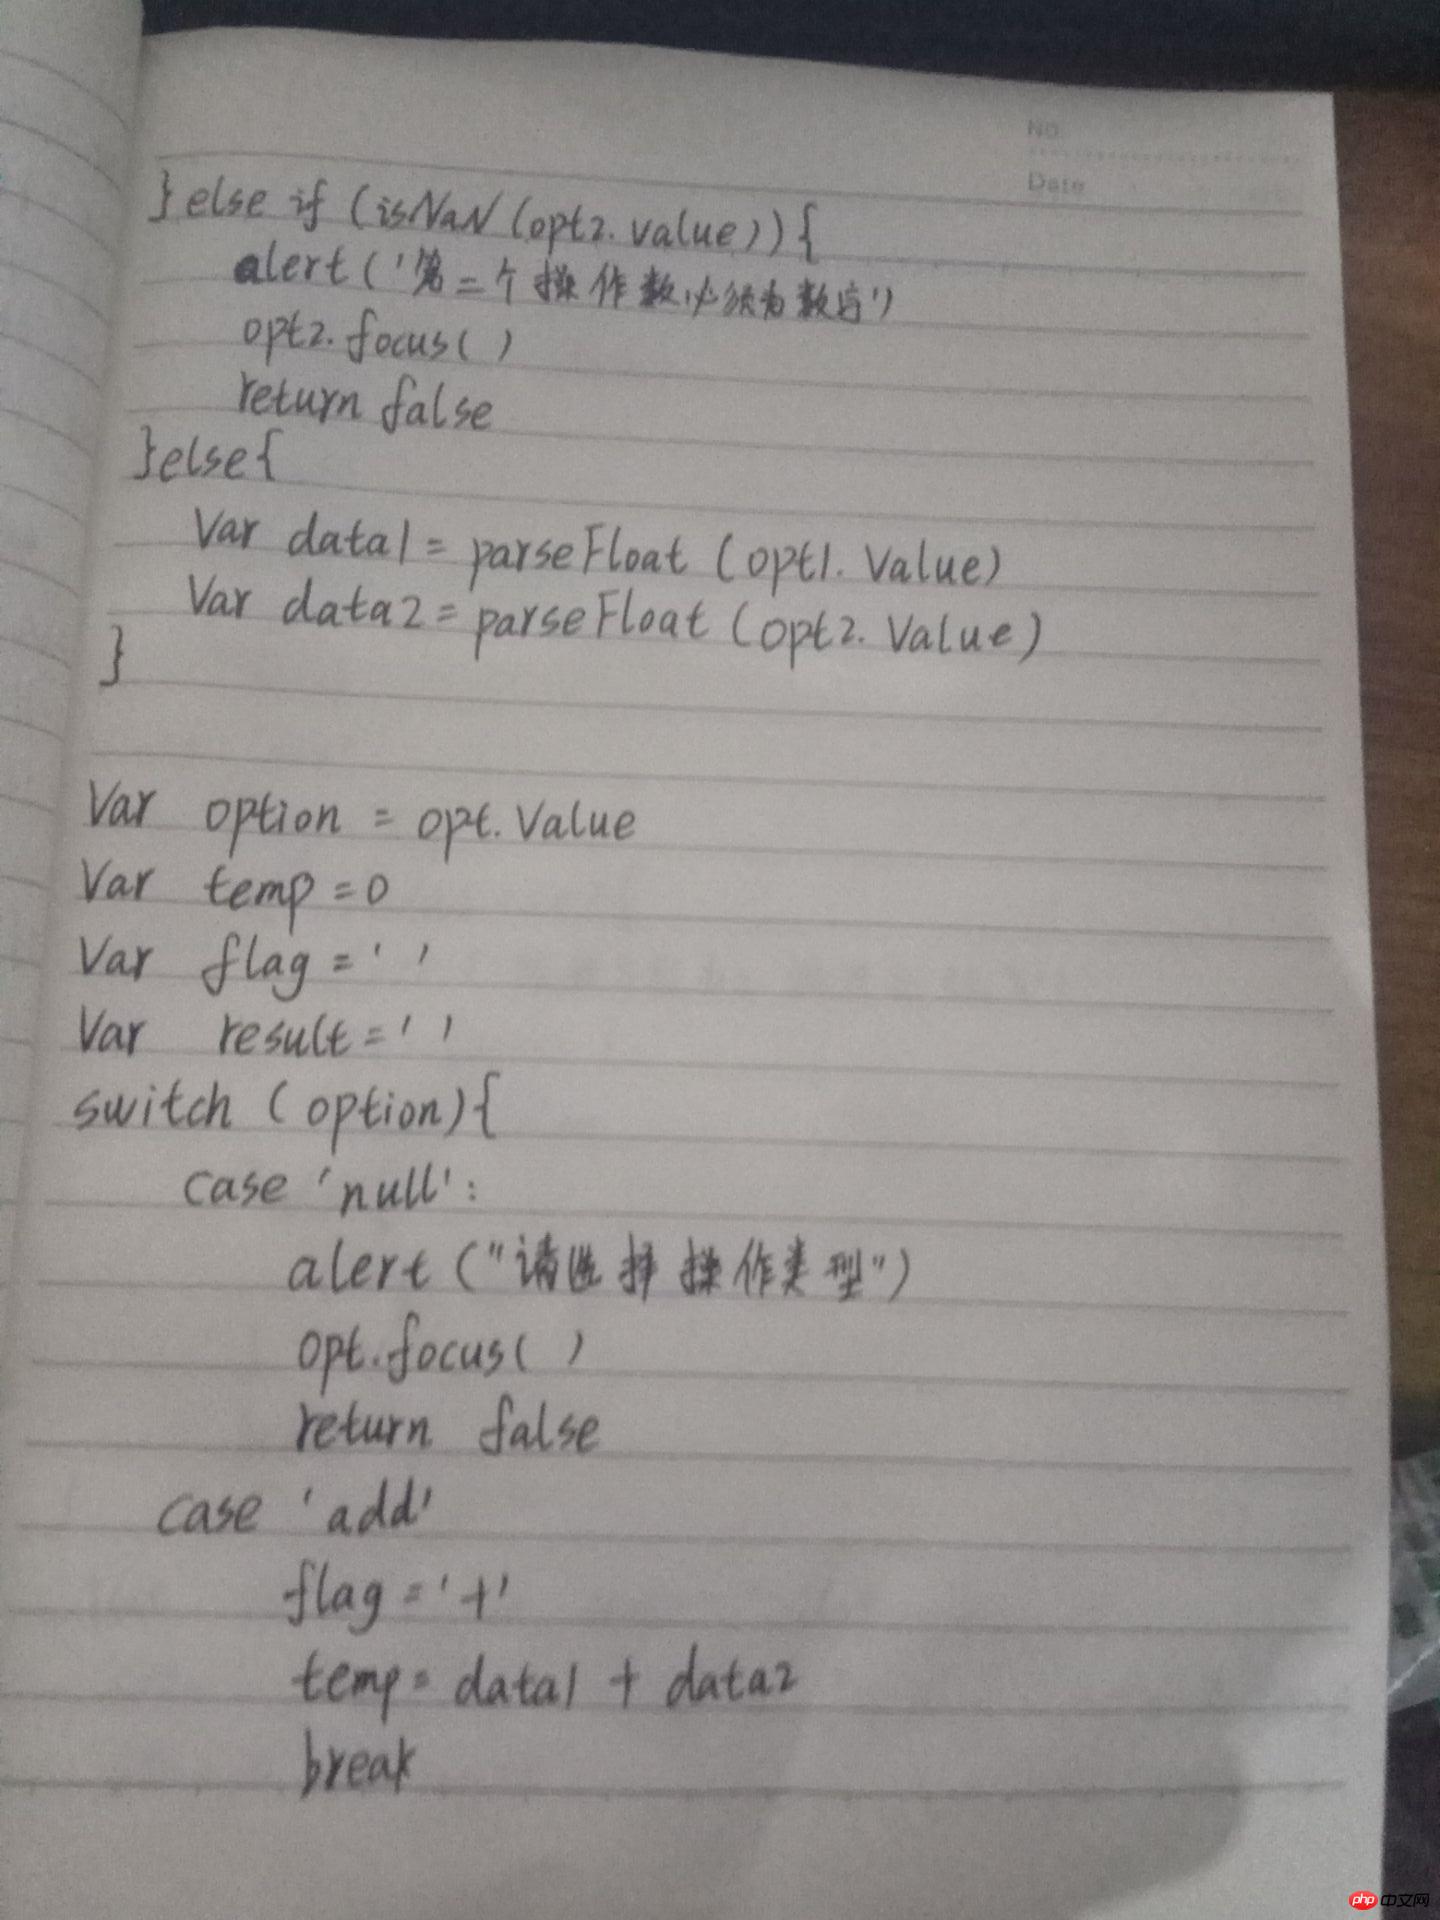 NO.
Date
}else if (isNaN(opt2.value)){
alert('第二个操作数必须为数字')
opt2.focus( )
return false
}else{
Var data1 = parseFloat (opt1.Value)
Var data2 = parseFloat (opt2.Value)
}
Var option = opt.Value
Var temp = 0
Var flag = ' '
Var result = ' '
switch (option){
case 'null':
alert ("请选择操作类型")
opt.focus( )
return false
case 'add'
flag = '+'
temp = data1 + data2
break
php 中文网